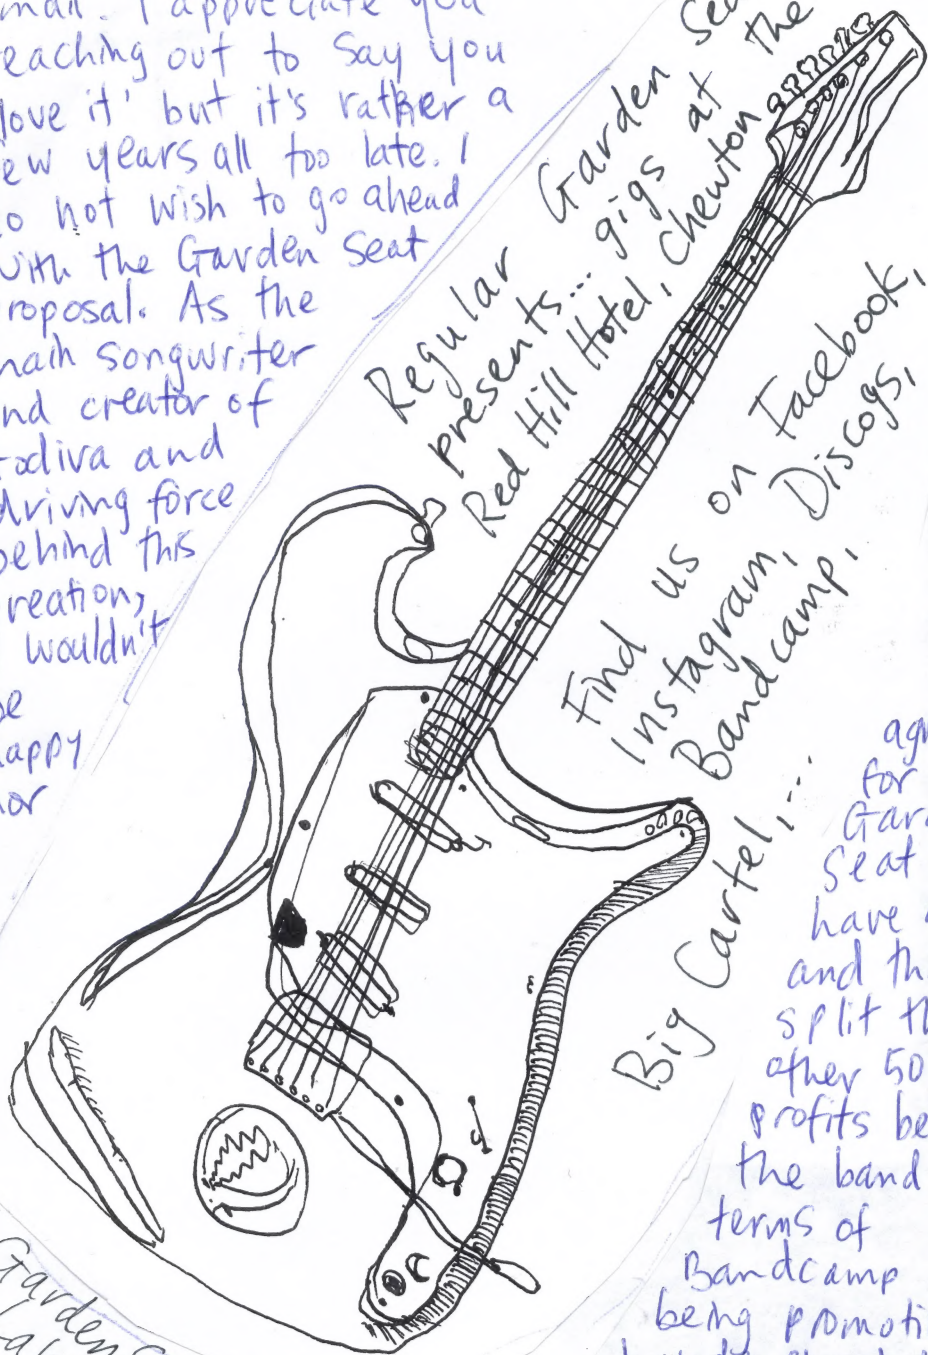 mail. I appreciate you
eaching out to say you
love it' but it's rather a
ew years all too late. I
o not wish to go ahead
with the Garden Seat
roposal. As the
main songwriter
nd creator of
odiva and
driving force
behind this
reation,
wouldn't
be
happy
nor
Regular Garden Sea
presents... gigs at the
Red Hill Hotel, Chewton
Find us on Facebook,
Instagram, Discogs,
Bandcamp,
Big Cartel,...
agr
for
Gar
Seat
have
and th
split th
other 50
profits be
the band
terms of
Bandcamp
being promoti
Garden S